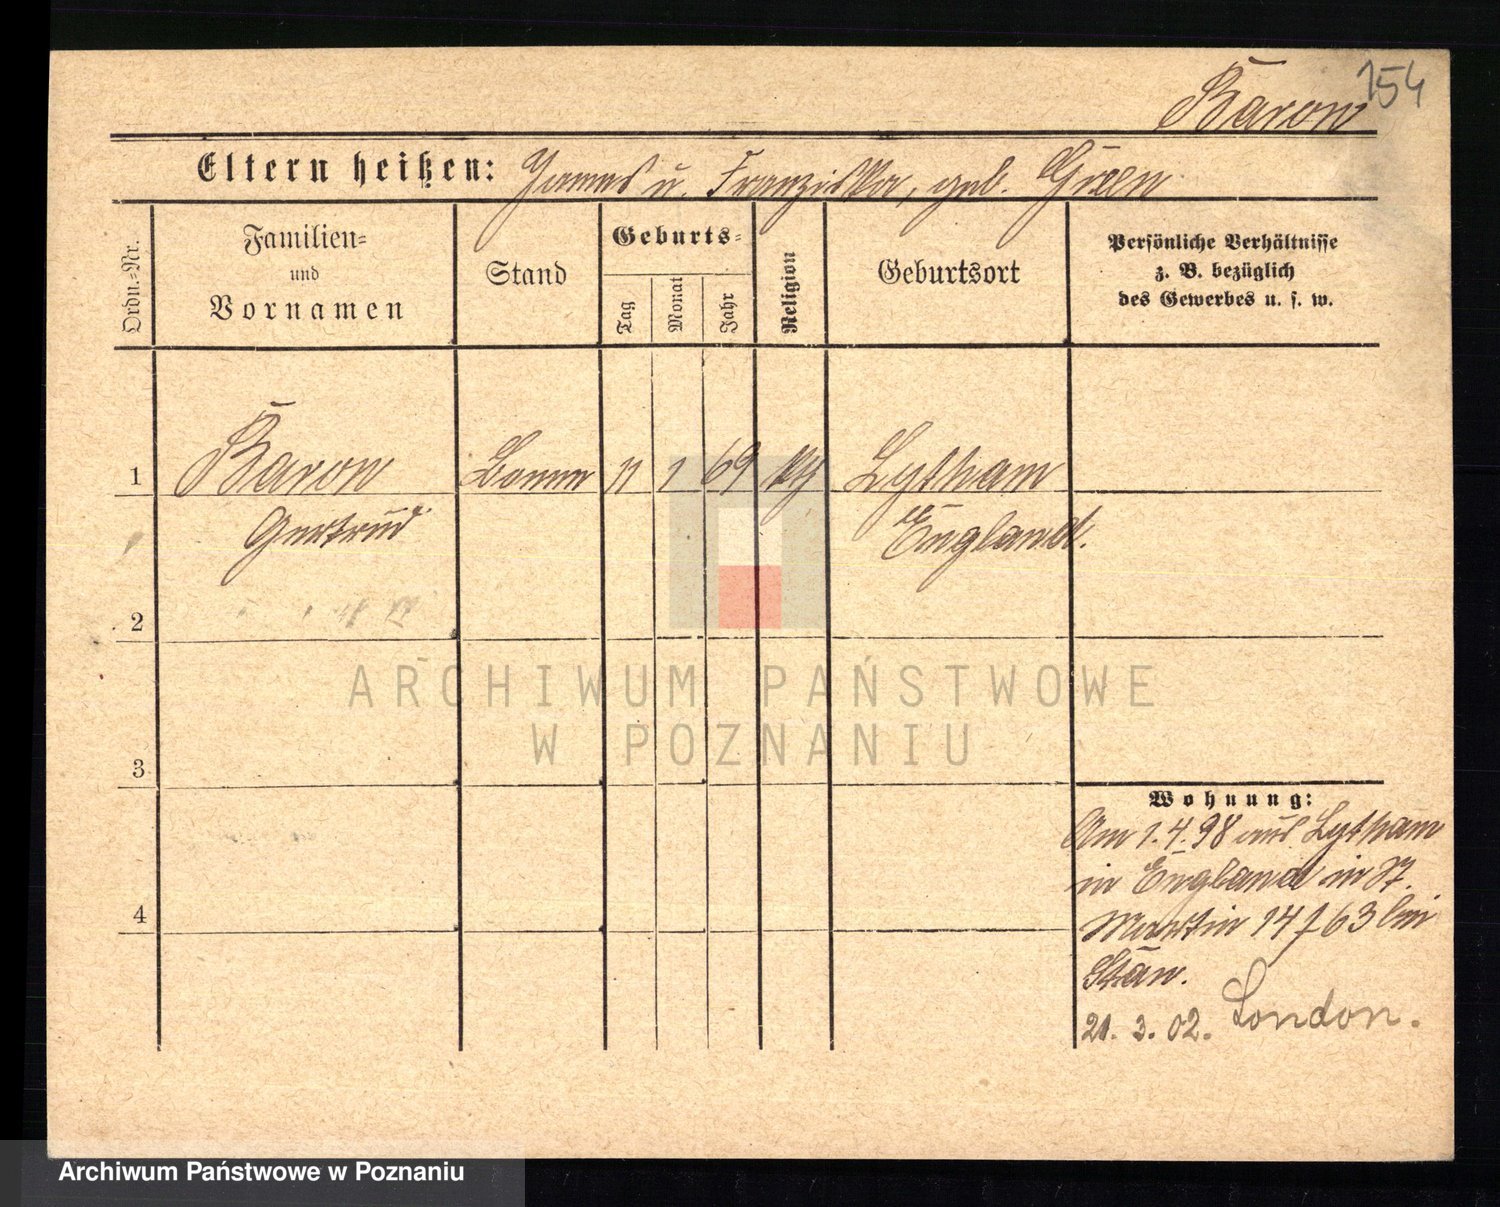 154
Baron
Eltern heißen: James u. Franziska, geb. Green
Ordn.-Nr.
Familien-
und
Vornamen
Stand
Geburts-
Tag
Monat
Jahr
Religion
Geburtsort
Persönliche Verhältnisse
z. B. bezüglich
des Gewerbes u. s. w.
1 Baron Bonne 11 1 69 Lytham
Gertrud England.
2
ARCHIWUM PAŃSTWOWE
W POZNANIU
3
Wohnung:
Am 1.4.98 aus Lytham
in England in St.
Martin 14/63 bei
Stan.
4
21. 3. 02. London.
Archiwum Państwowe w Poznaniu